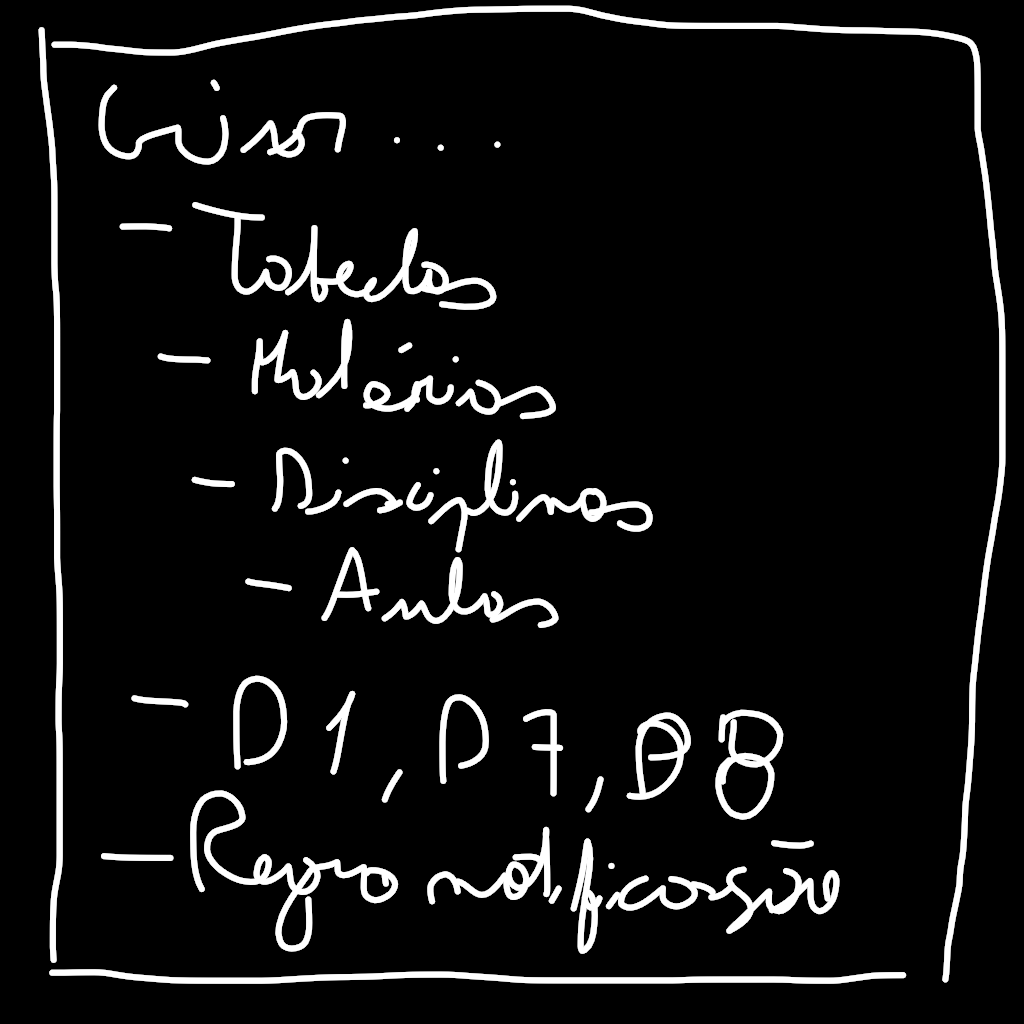 Criar ...
- Tabelas
- Matérias
- Disciplinas
- Aulas
- D1, D7,
- Regra notificação